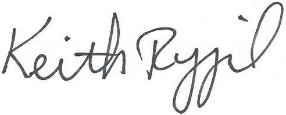 Keith Ryjil